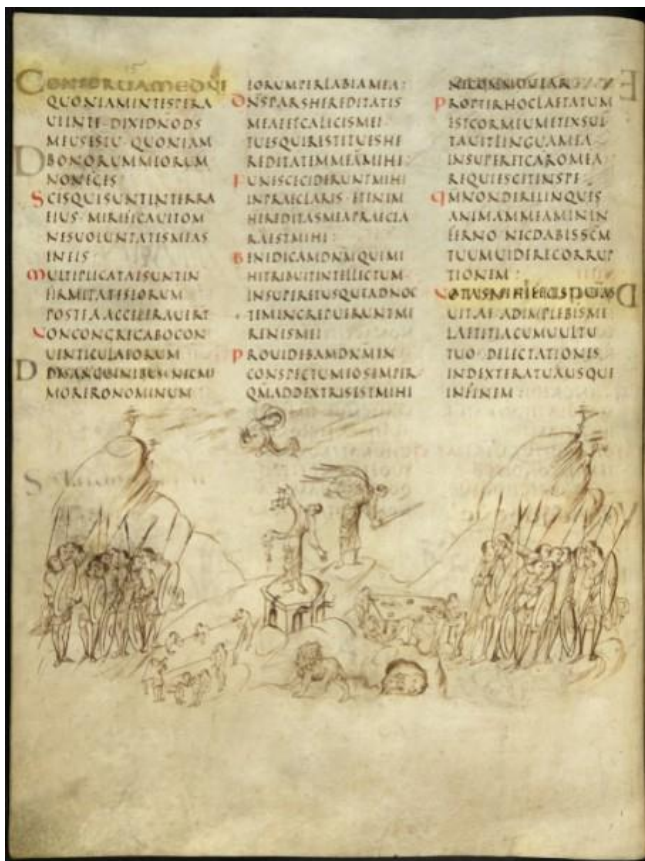 15
CONSERUAMEDNE
QUONIAMINTESPERA
UIINTE DIXIDNODS
MEUSESTU QUONIAM
BONORUMMEORUM
NONEGES
SCISQUISUNTINTERRA
EIUS MIRIFICAUITOM
NESUOLUNTATESMEAS
INEIS
MULTIPLICATAESUNTIN
FIRMITATESEORUM
POSTEAACCELERAUERT
NONCONGREGABOCON
UENTICULAEORUM
DESANGUINIBUS NECME
MORERONOMINUM
EORUMPERLABIAMEA:
DNSPARSHEREDITATIS
MEAEETCALICISMEI
TUESQUIRESTITUESHE
REDITATEMMEAMIHI:
FUNESCECIDERUNTMIHI
INPRAECLARIS ETENIM
HEREDITASMEAPRAECLA
RAESTMIHI:
BENEDICAMDNMQUIMI
HITRIBUITINTELLECTUM
INSUPERETUSQUEADNOC
TEMINCREPUERUNTME
RENESMEI
PROUIDEBAMDNMIN
CONSPECTUMEOSEMPER
QMADDEXTRISESTMIHI
NECOMMOUEAR
PROPTERHOCLAETATUM
ESTCORMEUMETEXSUL
TAUITLINGUAMEA
INSUPERETCAROMEA
REQUIESCETINSPE
QMNONDERELINQUES
ANIMAMMEAMININ
FERNO NECDABISSCM
TUUMUIDERECORRUP
TIONEM:
UITAE ADIMPLEBISME
LAETITIACUMUULTU
TUO DELECTATIONES
INDEXTERATUAUSQUE
INFINEM: